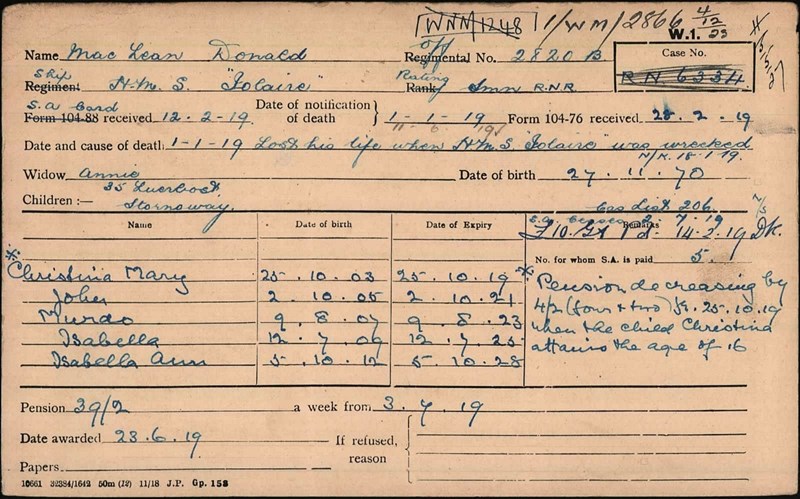 WNM/1248 1/WM/2866 4/12/23
W.1.
Name Mac Lean Donald off Regimental No. 2820 B Case No.
Ship Regiment H.M.S. "Iolaire" Rating Rank Smn R.N.R. RN 6334
S.A. Card Form 104-88 received 12.2-19 Date of notification of death } 1-1-19 Form 104-76 received 28.2.19
Date and cause of death 1-1-19 Lost his life when H.M.S. "Iolaire" was wrecked
N/K. 18.1.19.
Widow Annie Date of birth 27.11.70
35 Luerbost
Children :— Stornoway. Cas List 206
S.A. 2.7.19
Name Date of birth Date of Expiry Remarks
£10. Gt Pd. 14.2.19 DK.
No. for whom S.A. is paid 5.
* Christina Mary 25.10.03 25.10.19
John 2.10.05 2.10.21
Murdo 9.8.07 9.8.23
Isabella 12.7.09 12.7.25
Isabella Ann 5.10.12 5.10.28
* Pension decreasing by
4/2 (four & two) fr. 25.10.19
when the child Christina
attains the age of 16
Pension 39/2 a week from 3.7.19
Date awarded 23.6.19 If refused, reason
Papers
10661 32384/1642 50m (12) 11/18 J.P. Gp. 158